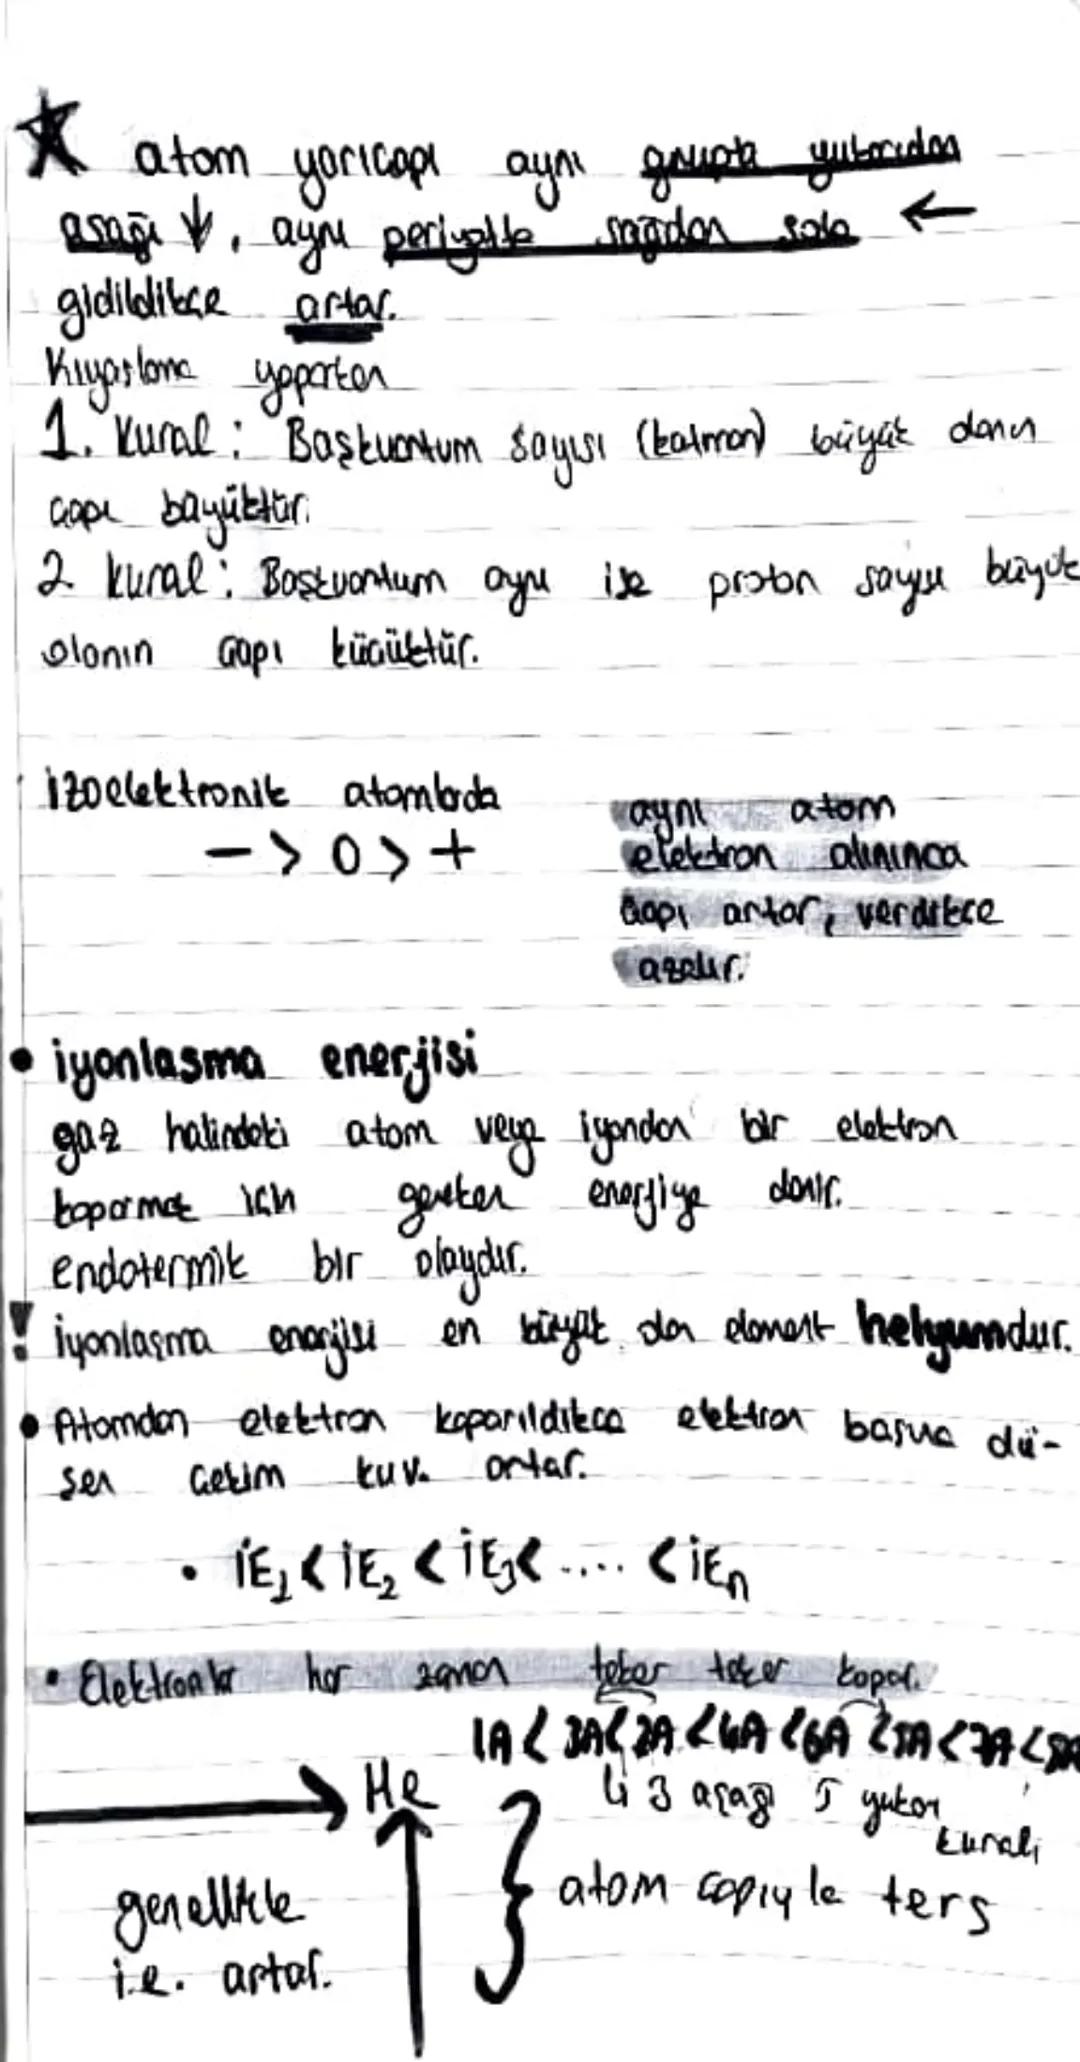 atom yarıçapı aynı grupta yukarıdan
aşağı ↓, aynı periyotta sağdan sola ←
gidildikçe artar.
Kıyaslama yaparken
1. Kural: Başkuantum sayısı (katman) büyük olanın
çapı büyüktür.
2 kural: Başkuantum aynı ise proton sayısı büyük
olanın çapı küçüktür.
izoelektronik atomlarda
- > 0 > +
aynı atom
elektron alınınca
çapı artar, verdikçe
azalır.
• iyonlaşma enerjisi
gaz halindeki atom veya iyondan bir elektron
koparmak için gereken enerjiye denir.
endotermik bir olaydır.
! İyonlaşma enerjisi en büyük olan element helyumdur.
• Atomdan elektron koparıldıkca elektron başına dü-
şen çekim kuv. artar.
• İE1 < İE2 < İE3 < .... < İEn
• Elektronlar her zaman teker teker kopar.
1A < 3A < 2A < 4A < 6A < 5A < 7A < 8A
→ He
3 aşağı 5 yukarı
kuralı
genellikle
i.e. artar.
} atom çapıyla ters